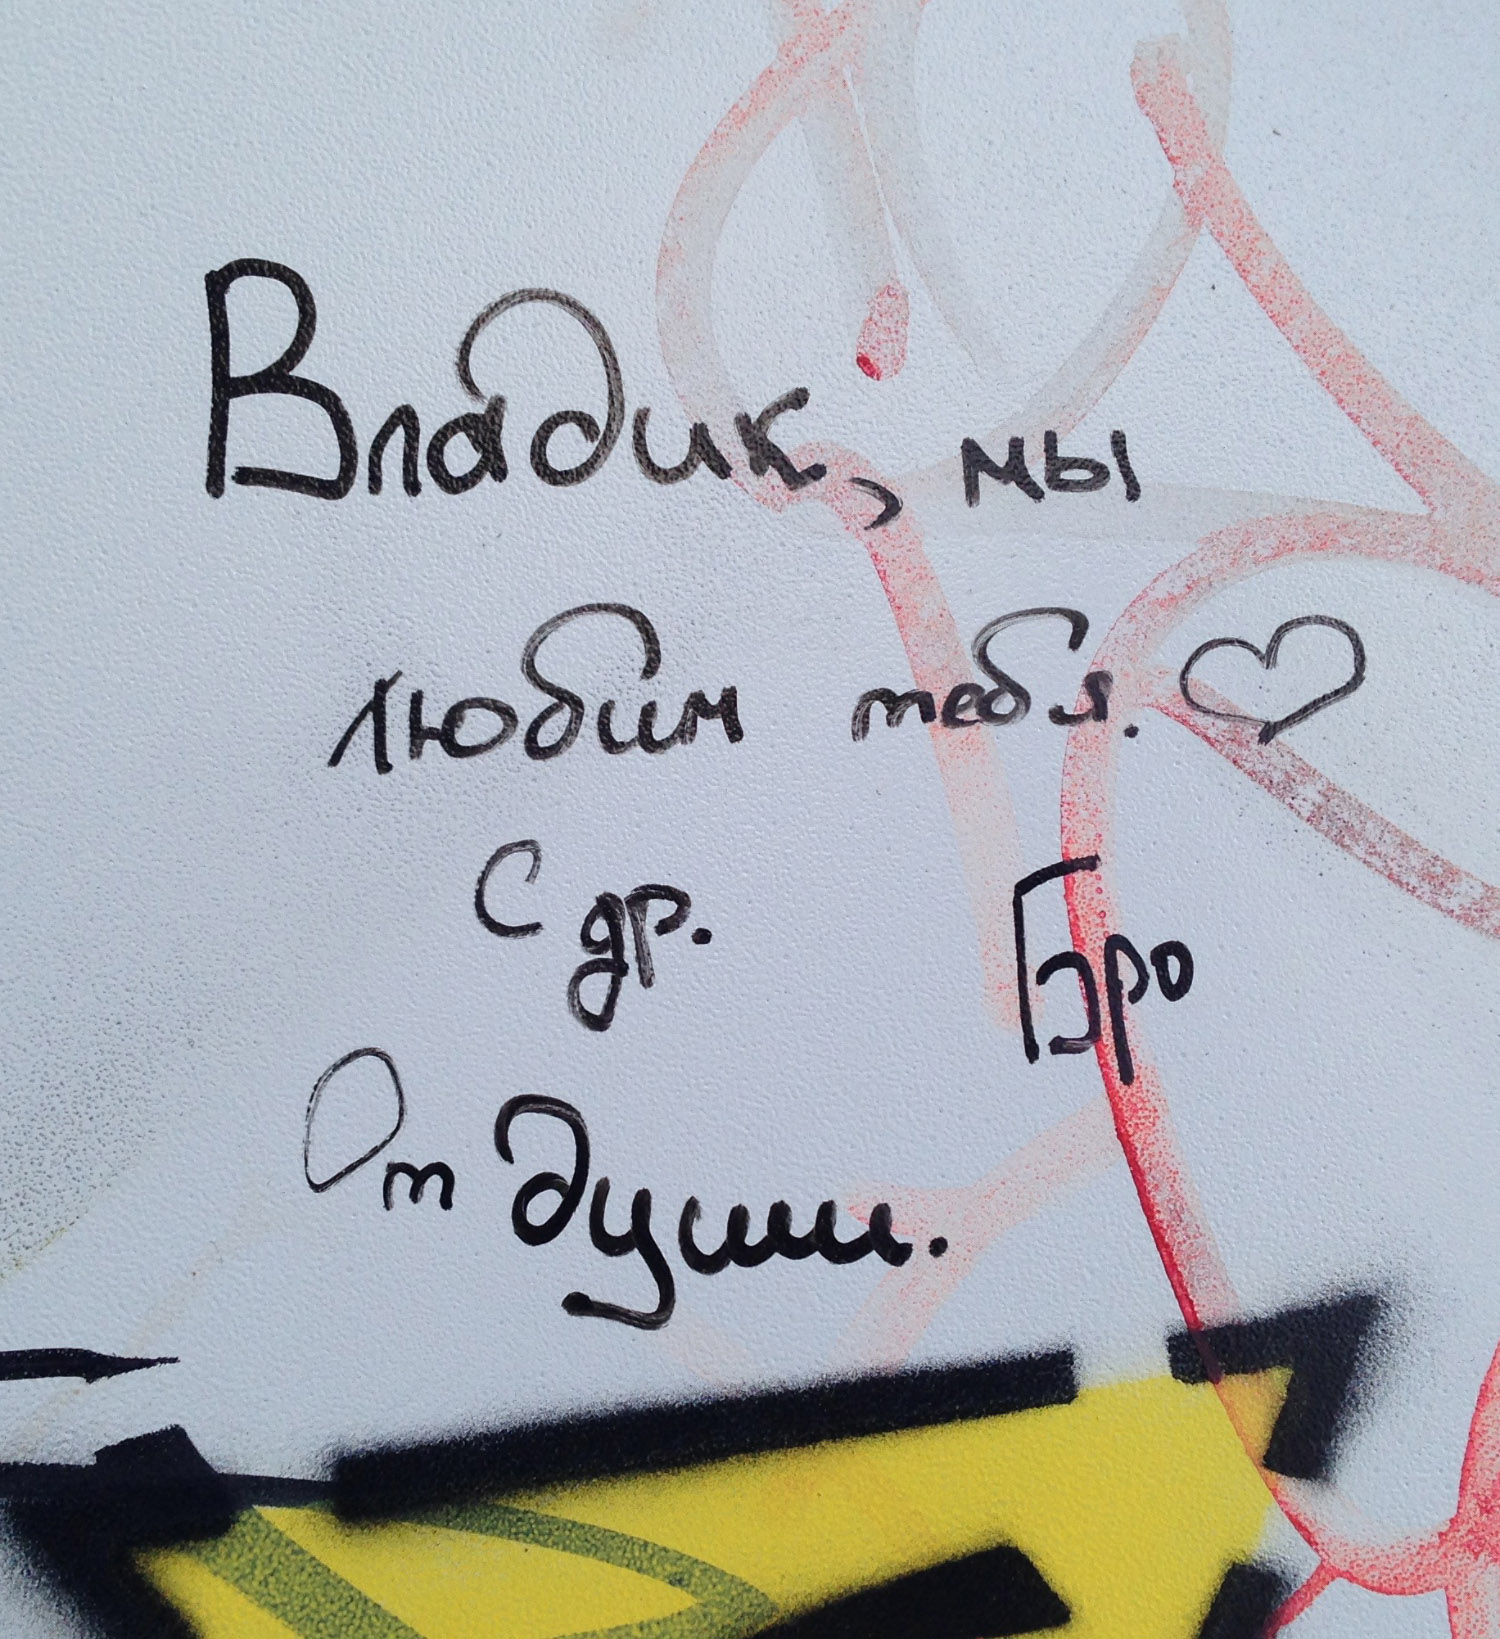 Владик, мы
любим тебя.
С др. Бро
От души.